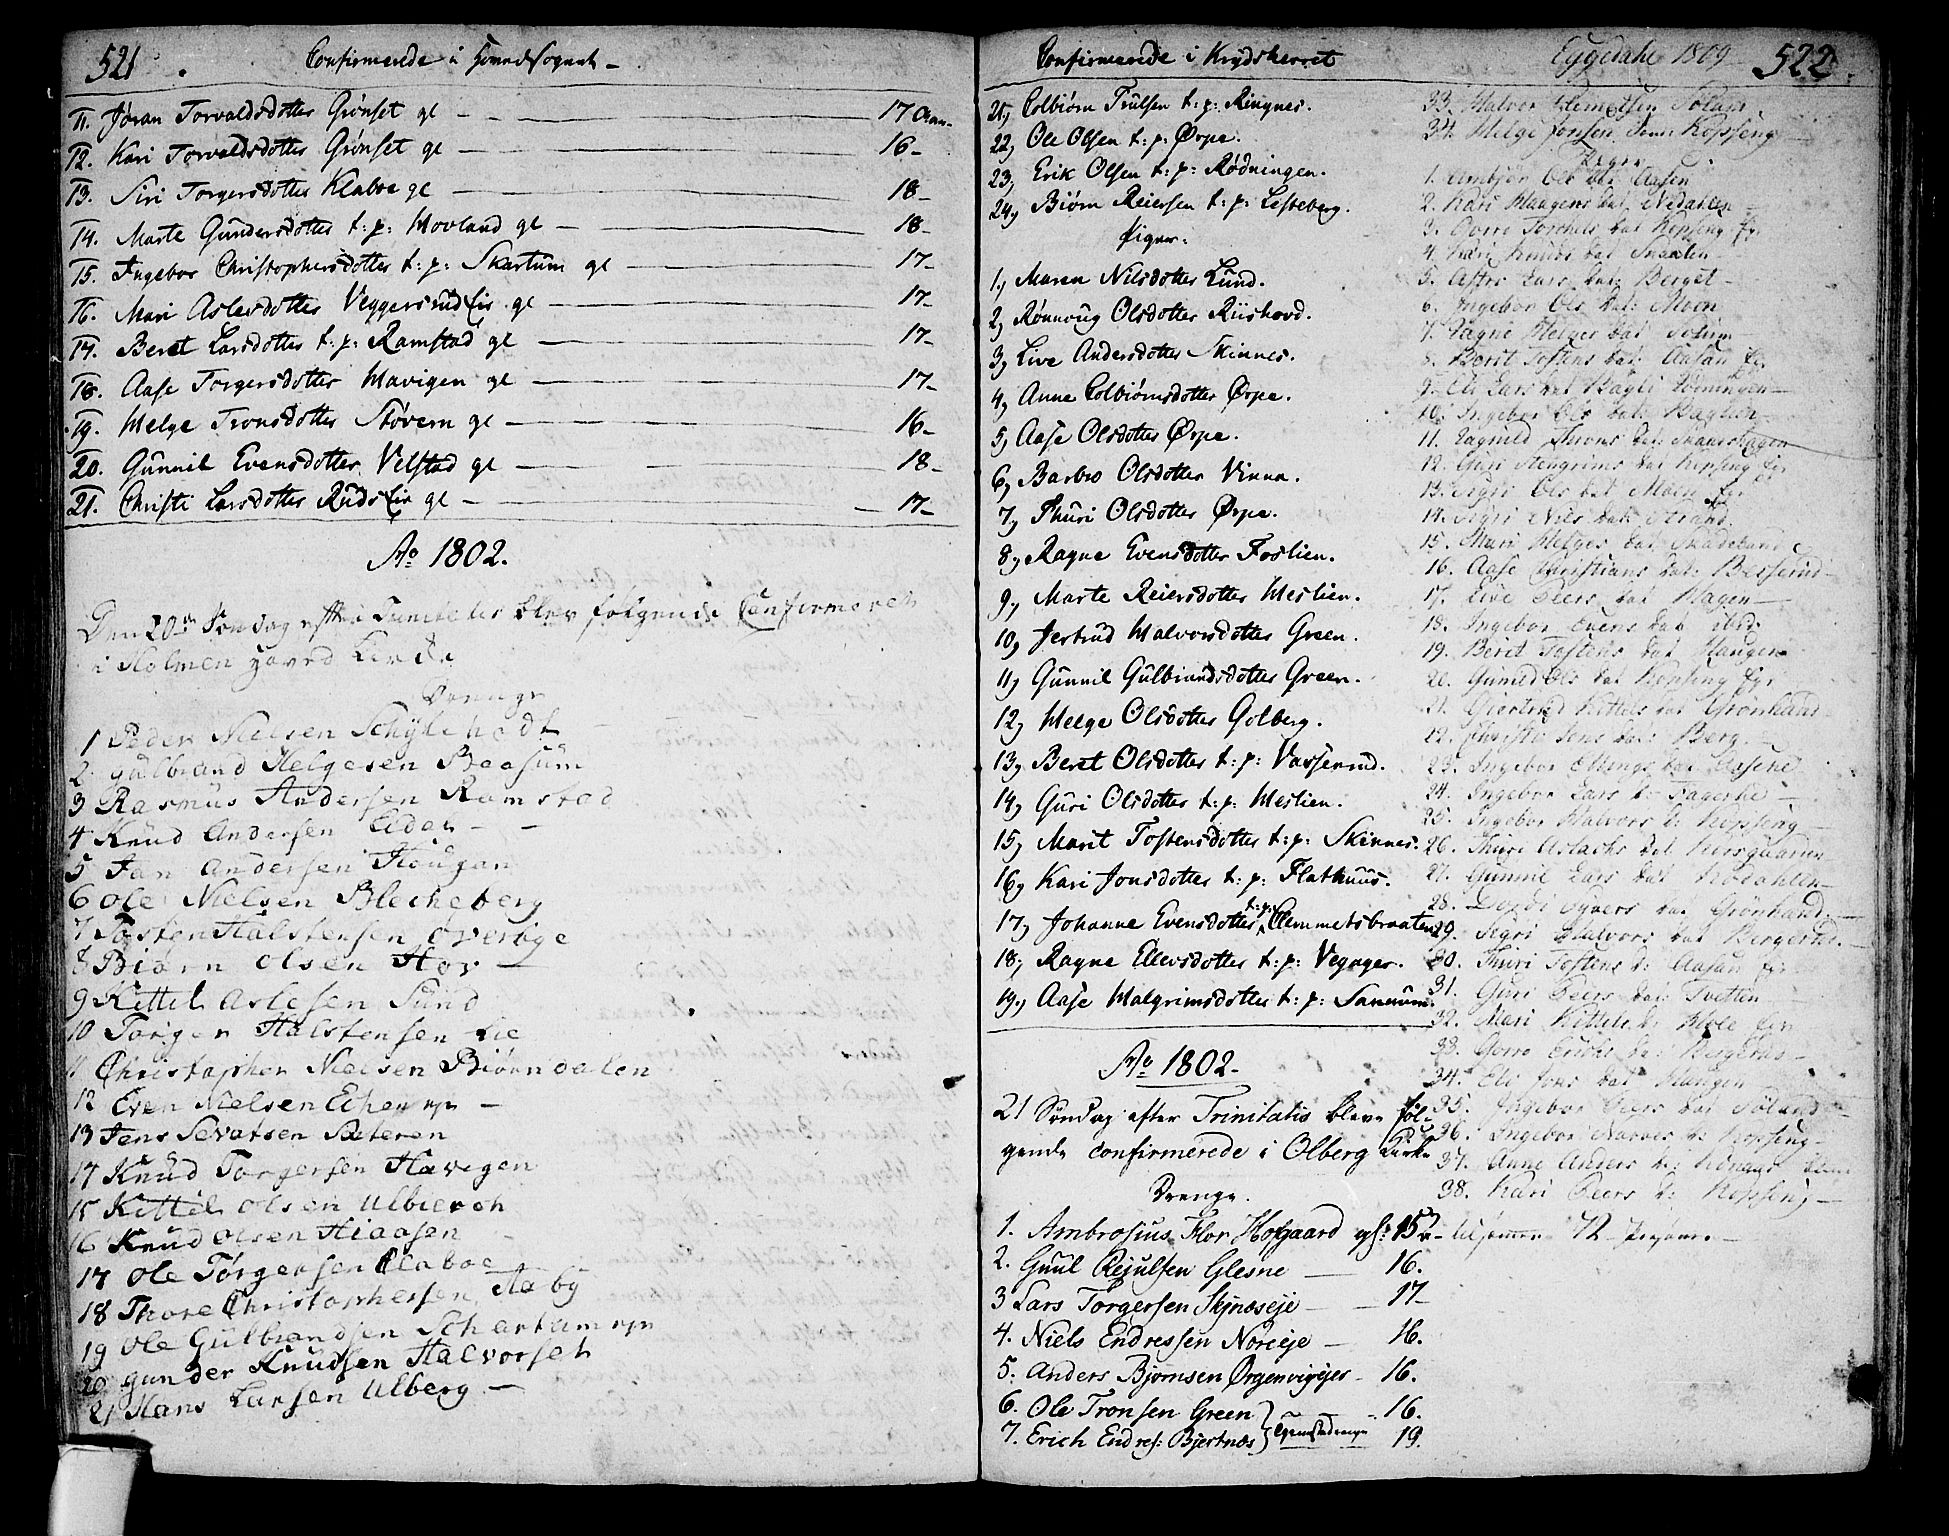 521
Confirmerede i Hovedsognet
11. Jøran Torvaldsdotter Grønset ge — 17 Aar
12. Kari Torvaldsdotter Grønset ge — 16
13. Siri Torgersdotter Klaboe ge — 18
14. Marte Gundersdotter t: p: Hovland ge — 18
15. Ingebor Christophersdotter t: p: Skartum ge — 17
16. Mari Aslevsdotter Veggersrud Eie ge — 17
17. Beret Larsdotter t: p: Ramstad ge — 17
18. Aase Torgersdotter Havigen ge — 17
19. Helge Tronsdotter Støvern ge — 16
20. Gunnil Evensdotter Velstad ge — 18
21. Christi Larsdotter Ruds Eie ge — 17
Ao 1802.
Den 20de Søndag efter Trinitatis blev følgende Confirmeret
i Holmen hoved Kirke
Drenge
1 Peder Nielsen Schÿlehodt
2 Gulbrand Helgesen Baasum
3 Rasmus Andersen Ramstad
4 Knud Andersen Eidal
5 Jan Andersen Hougan
6 Ole Nielsen Blecheberg
7 Tosten Halstensen Overbye
8 Biørn Olsen Hov
9 Kittil Aslesen Sund
10 Torger Halstensen Lie
11 Christopher Nielsen Biørndalen
12 Even Nielsen Echeren
13 Jens Sevatsen Sæteren
14 Knud Torgersen Havegen
15 Kittil Olsen Ulbieroh
16 Knud Olsen Hiaasen
17 Ole Torgersen Claboe
18 Thore Christophersen Aaby
19 Ole Gulbrandsen Schartum
20 Gunder Knudsen Halvorset
21 Hans Larsen Ulberg
Confirmerede i Krydsherret
21, Colbiørn Trulsen t: p: Ringnes.
22, Ole Olsen t: p: Ørpe.
23, Erik Olsen t: p: Rødningen.
24, Biørn Reiersen t: p: Lesteberg.
Piger.
1, Maren Nilsdotter Lund.
2, Rønnoug Olsdotter Riishovd.
3, Live Andersdotter Skinnes.
4, Anne Colbiørnsdotter Ørpe.
5, Aase Olsdotter Ørpe.
6, Barbro Olsdotter Vinna.
7, Thuri Olsdotter Ørpe.
8, Ragne Evensdotter Foslien.
9, Marte Reiersdotter Meslien.
10, Jertrud Halvorsdotter Green.
11, Gunnil Gulbrandsdotter Green.
12, Helge Olsdotter Golberg.
13, Beret Olsdotter t: p: Vasserud.
14, Guri Olsdotter t: p: Meslien.
15, Marit Tostensdotter t: p: Skinnes.
16, Kari Jonsdotter t: p: Flathuus.
17, Johanne Evensdotter t: p: Clemmetsbraaten
18, Ragne Ellevsdotter t: p: Veganger.
19, Aase Halgrimsdotter t: p: Sannum.
Ao 1802.
21 Søndag efter Trinitatis bleve føl-
gende confirmerede i Olberg Kirke
Drenge.
1. Ambrosius Flor Hofgaard gl: 15
2. Guul Rejulsen Glesne — 16.
3 Lars Torgersen Skjnæseje — 17
4. Niels Endressen Noreeje — 16.
5. Anders Bjørnsen Ørgenvigejer — 16.
6. Ole Tronsen Green — 16.
7. Erich Endres: Bjertnæs — 19.
Eggedahl 1809
522.
33. Halvor Clemetsen Solum
34. Helge Jonsen Kopseng
Piger
1. Ambjør Ols dat Aasen
2. Kari Haagens dat. Nedalen
3. Gorro Torchels dat Kopseng
4. Kari Knuds dat Snaalen
5. Astri Lars dat Berget
6. Ingebor Ols dat: Moen
7. Ragne Helges dat Solum
8. Berit Tostens dat: Aasan
9. Eli Lars dat Bagli
10. Ingebor Ols dat: Baglien
11. Ragnild Throns dat:
12. Guri Stengrims dat Kopseng
13. Sigri Ols dat Moen
14. Sigri Niels dat: Strand
15. Mari Helges dat
16. Aase Christians dat: Bergerud
17. Live Peers dat Hagen
18. Ingebor Peers dat ibid:
19. Beret Tostens dat Haugen
20. Gunild Ols dat Kopseng
21. Giertrud Kittels dat Grønhaad
22. Christi Jens dat: Berg.
23. Ingebor Ellings dat Aasene
24. Ingebor Lars d: Fagerlie
25. Ingebor Halvors d: Kopseng
26. Thuri Aslachs dat
27. Gunnil Lars dat
28. Dordi Syvers dat Grønhaad
29. Sigri Halvors dat Bergerud.
30. Thuri Tostens d: Aasan
31. Guri Peers dat: Tvetten
32. Mari Kittels d: Hole
33. Gorro Erichs dat: Bergerud
34. Eli Jons dat Haugen
35. Ingebor Peers dat Soland
36. Ingebor Narves d: Kopseng
37. Anne Anders d:
38. Kari Peers d: Kopseng
tilsammen 72 Personer